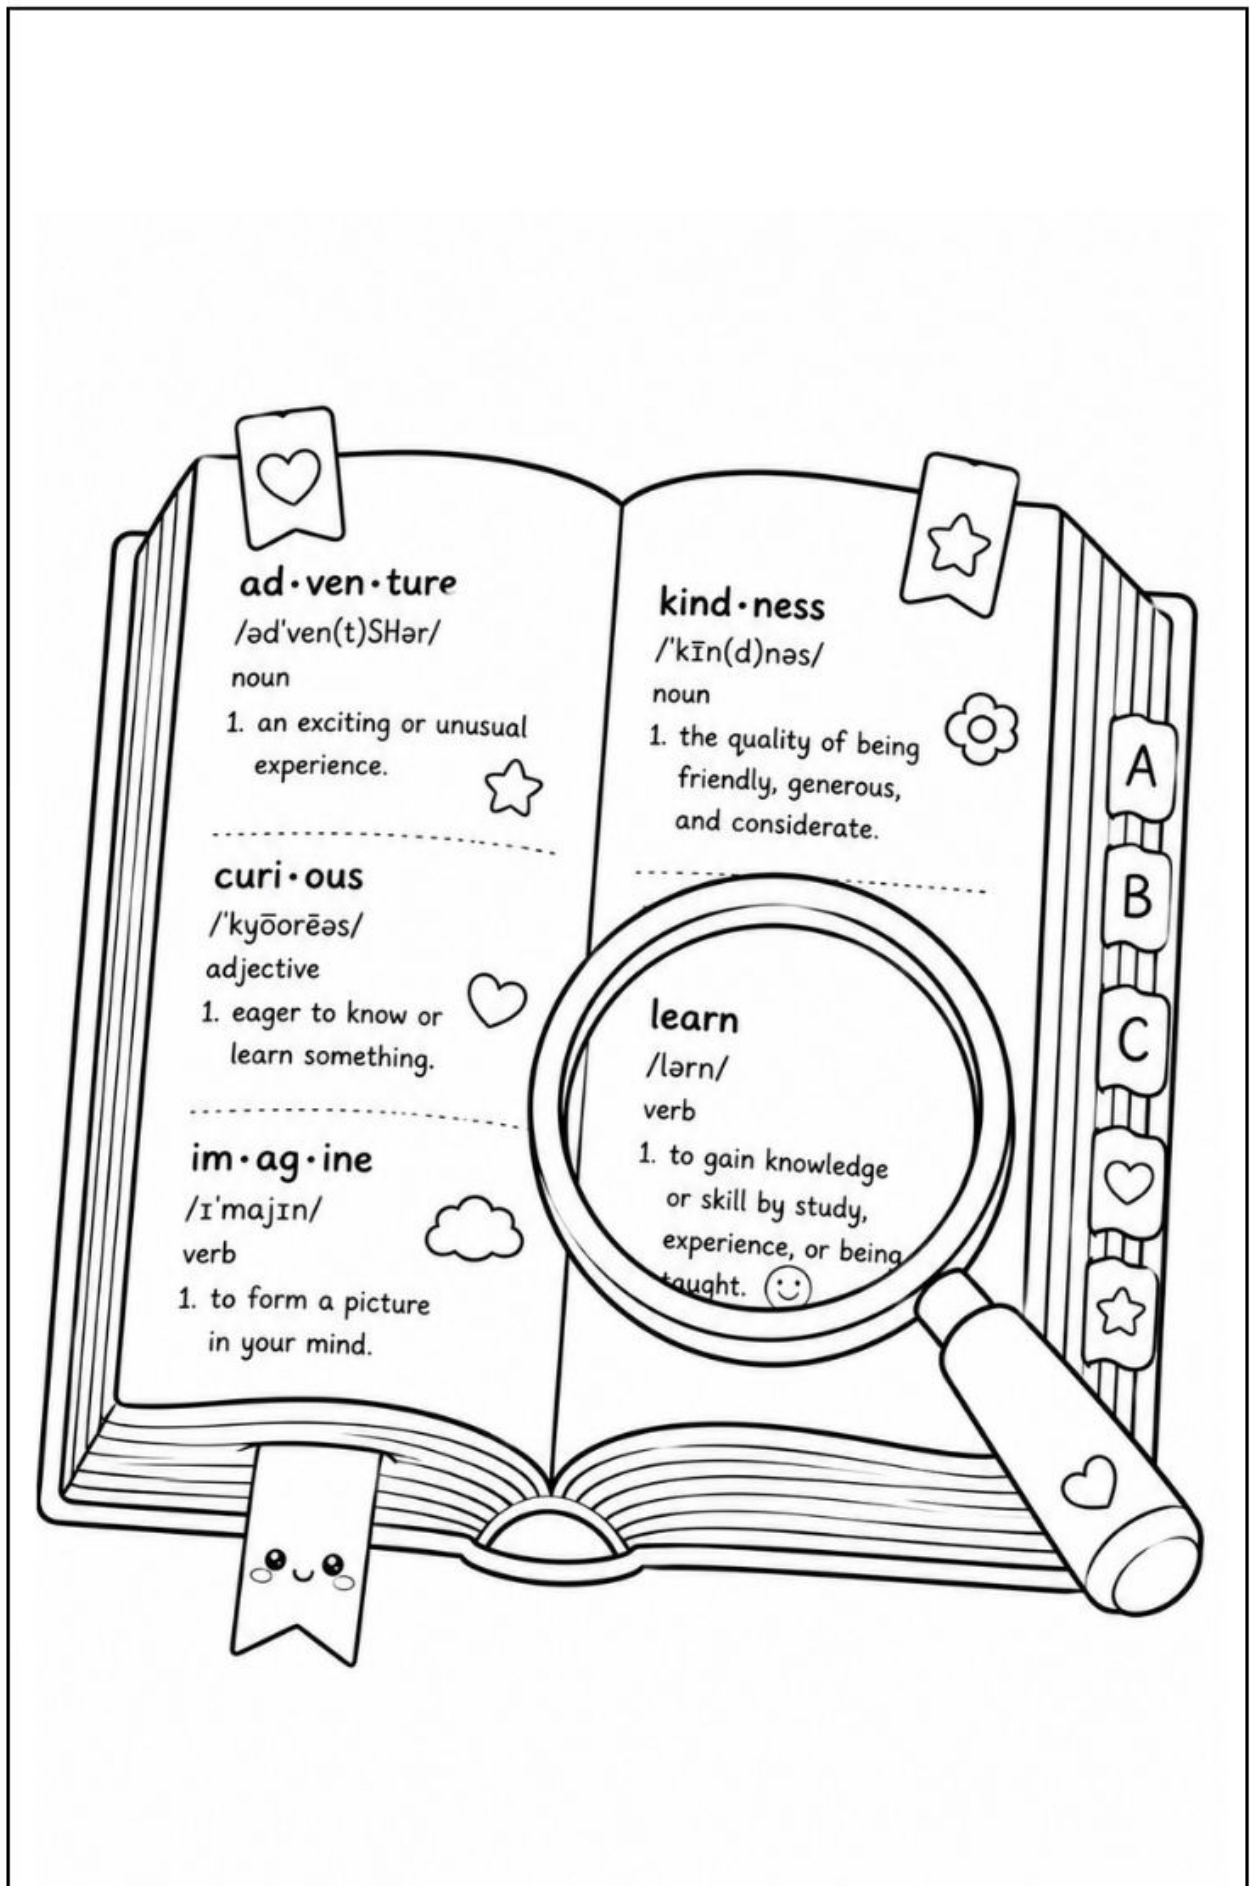 ad·ven·ture
/əd'ven(t)SHər/
noun
1. an exciting or unusual
experience.
curi·ous
/'kyōorēəs/
adjective
1. eager to know or
learn something.
im·ag·ine
/ɪ'majɪn/
verb
1. to form a picture
in your mind.
kind·ness
/'kīn(d)nəs/
noun
1. the quality of being
friendly, generous,
and considerate.
learn
/lərn/
verb
1. to gain knowledge
or skill by study,
experience, or being
taught.
A
B
C